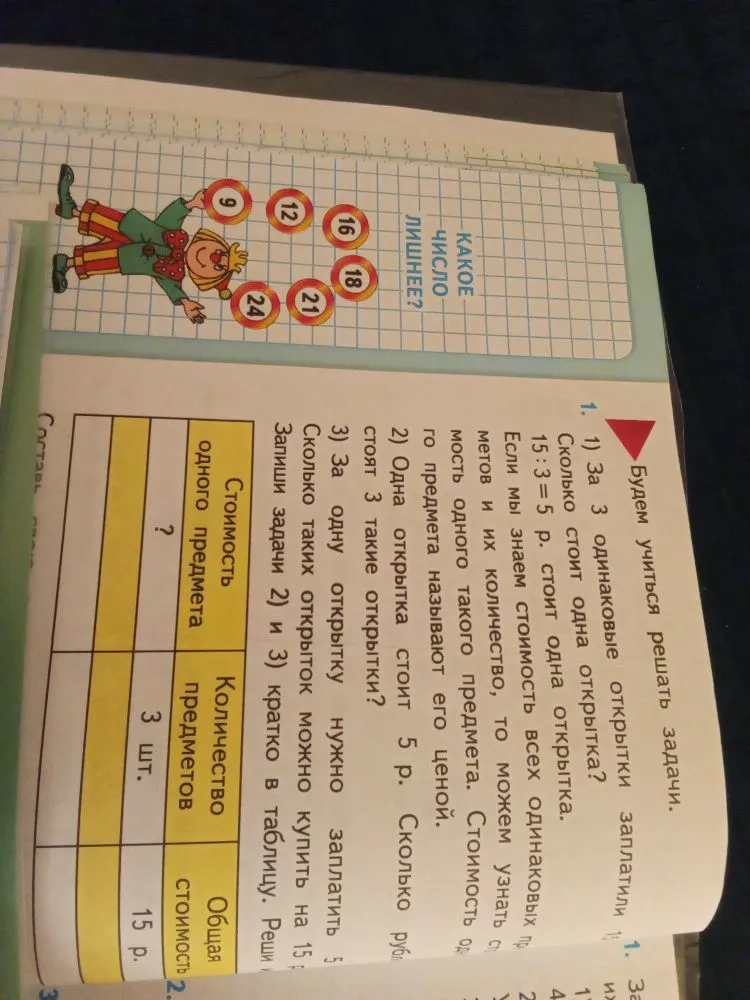 КАКОЕ
ЧИСЛО
ЛИШНЕЕ?
16
18
12
21
9
24
Будем учиться решать задачи.
1. 1) За 3 одинаковые открытки заплатили
Сколько стоит одна открытка?
15 : 3 = 5 р. стоит одна открытка.
Если мы знаем стоимость всех одинаковых
метов и их количество, то можем узнать
мость одного такого предмета. Стоимость
го предмета называют его ценой.
2) Одна открытка стоит 5 р. Сколько
стоят 3 такие открытки?
3) За одну открытку нужно заплатить 5
Сколько таких открыток можно купить на 15
Запиши задачи 2) и 3) кратко в таблицу. Реши
Стоимость одного предмета
Количество предметов
Общая стоимость
? 3 шт. 15 р.
1. За
2.
3